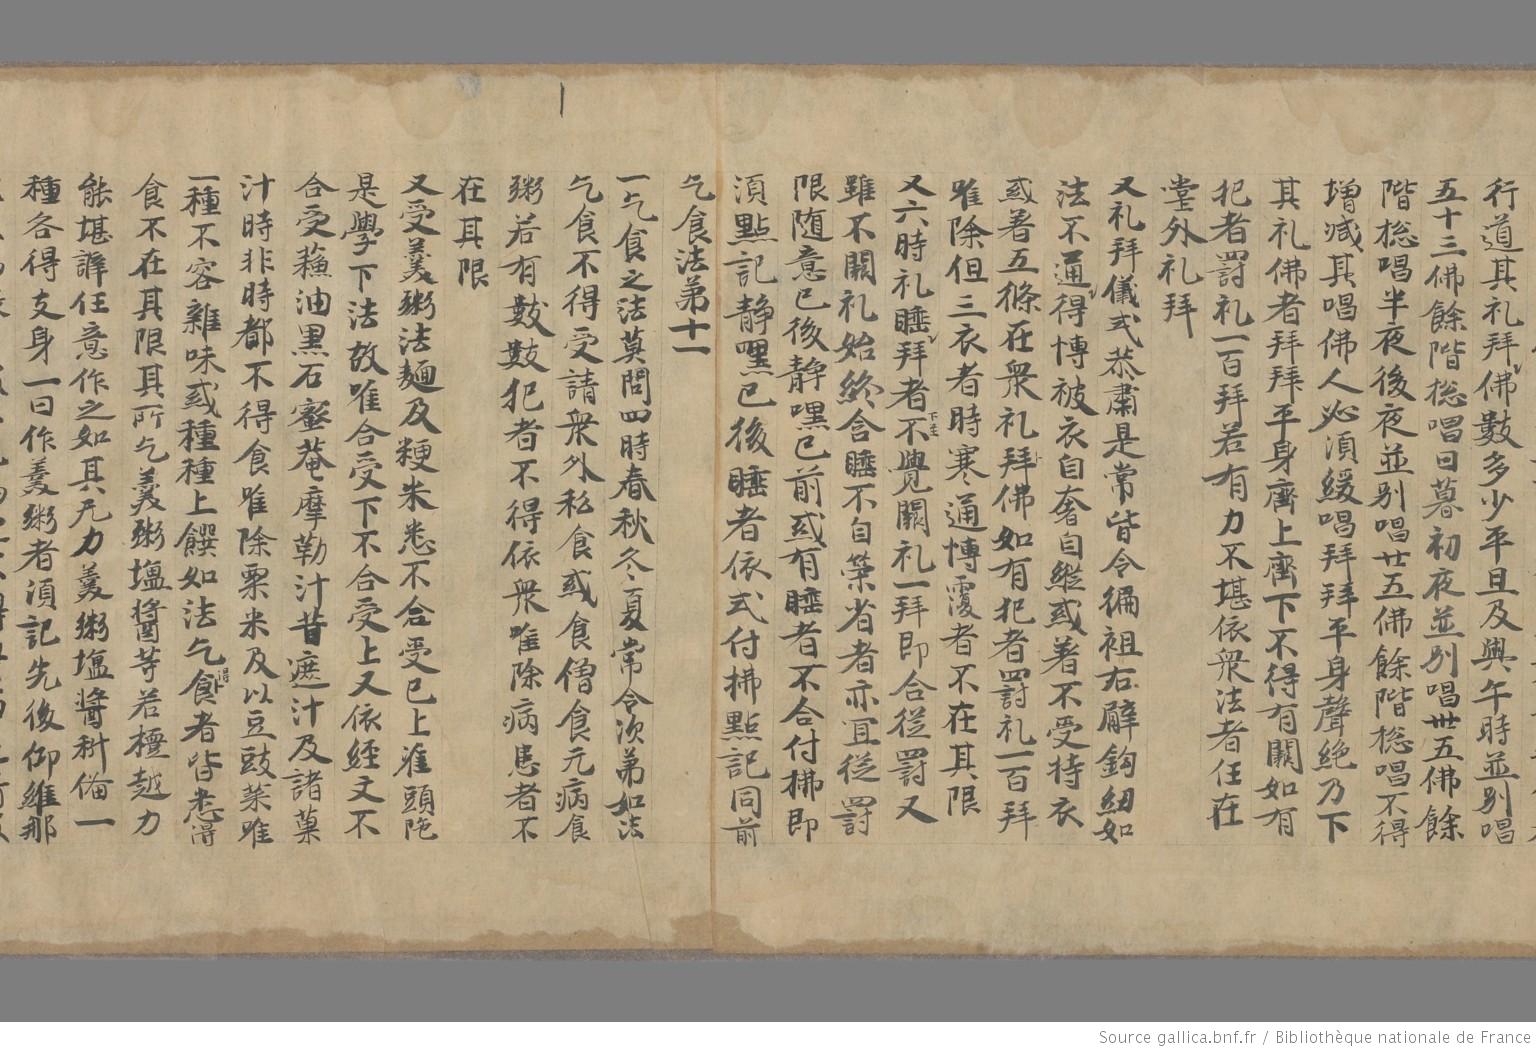 行道其礼拜佛數多少平旦及與午時並別唱
五十三佛餘階惣唱日暮初夜並別唱卅五佛餘
階惣唱半夜後夜並別唱廿五佛餘階惣唱不得
增減其唱佛人必湏緩唱拜拜平身聲絶乃下
其礼佛者拜拜平身齊上齊下不得有闕如有
犯者罸礼一百拜若有力不堪依衆法者任在
堂外礼拜
又礼拜儀式恭肅是常皆令徧袒右髆鈎紐如
法不通得愽被衣自奢自縱或著不受持衣
或著五條在衆礼拜佛如有犯者罸礼一百拜
唯除但三衣者時寒通愽覆者不在其限
又六時礼睡拜者不覺闕礼一拜即合従罸又
下至
雖不闕礼始終合睡不自策省者亦冝従罸
限随意已後静嘿已前或有睡者不合付拂即
湏點記静嘿已後睡者依式付拂點記同前
乞食法第十一
一乞食之法莫問四時春秋冬夏常令次第如法
乞食不得受請衆外私食或食僧食元病食
粥若有數數犯者不得依衆唯除病患者不
在其限
又受羹粥法麺及粳米悉不合受已上准頭陁
是學下法故唯合受下不合受上又依經文不
合受蘓油黒石蜜菴摩勒汁昔遮汁及諸菓
汁時非時都不得食唯除粟米及以豆豉菜唯
一種不容雜味或種種上饌如法乞食者皆悉得
得
食不在其限其所乞羹粥塩醬等若檀越力
能堪辝任意作之如其无力羹粥塩醬科俻一
種各得支身一日作羹粥者湏記先後仰維那
Source gallica.bnf.fr / Bibliothèque nationale de France